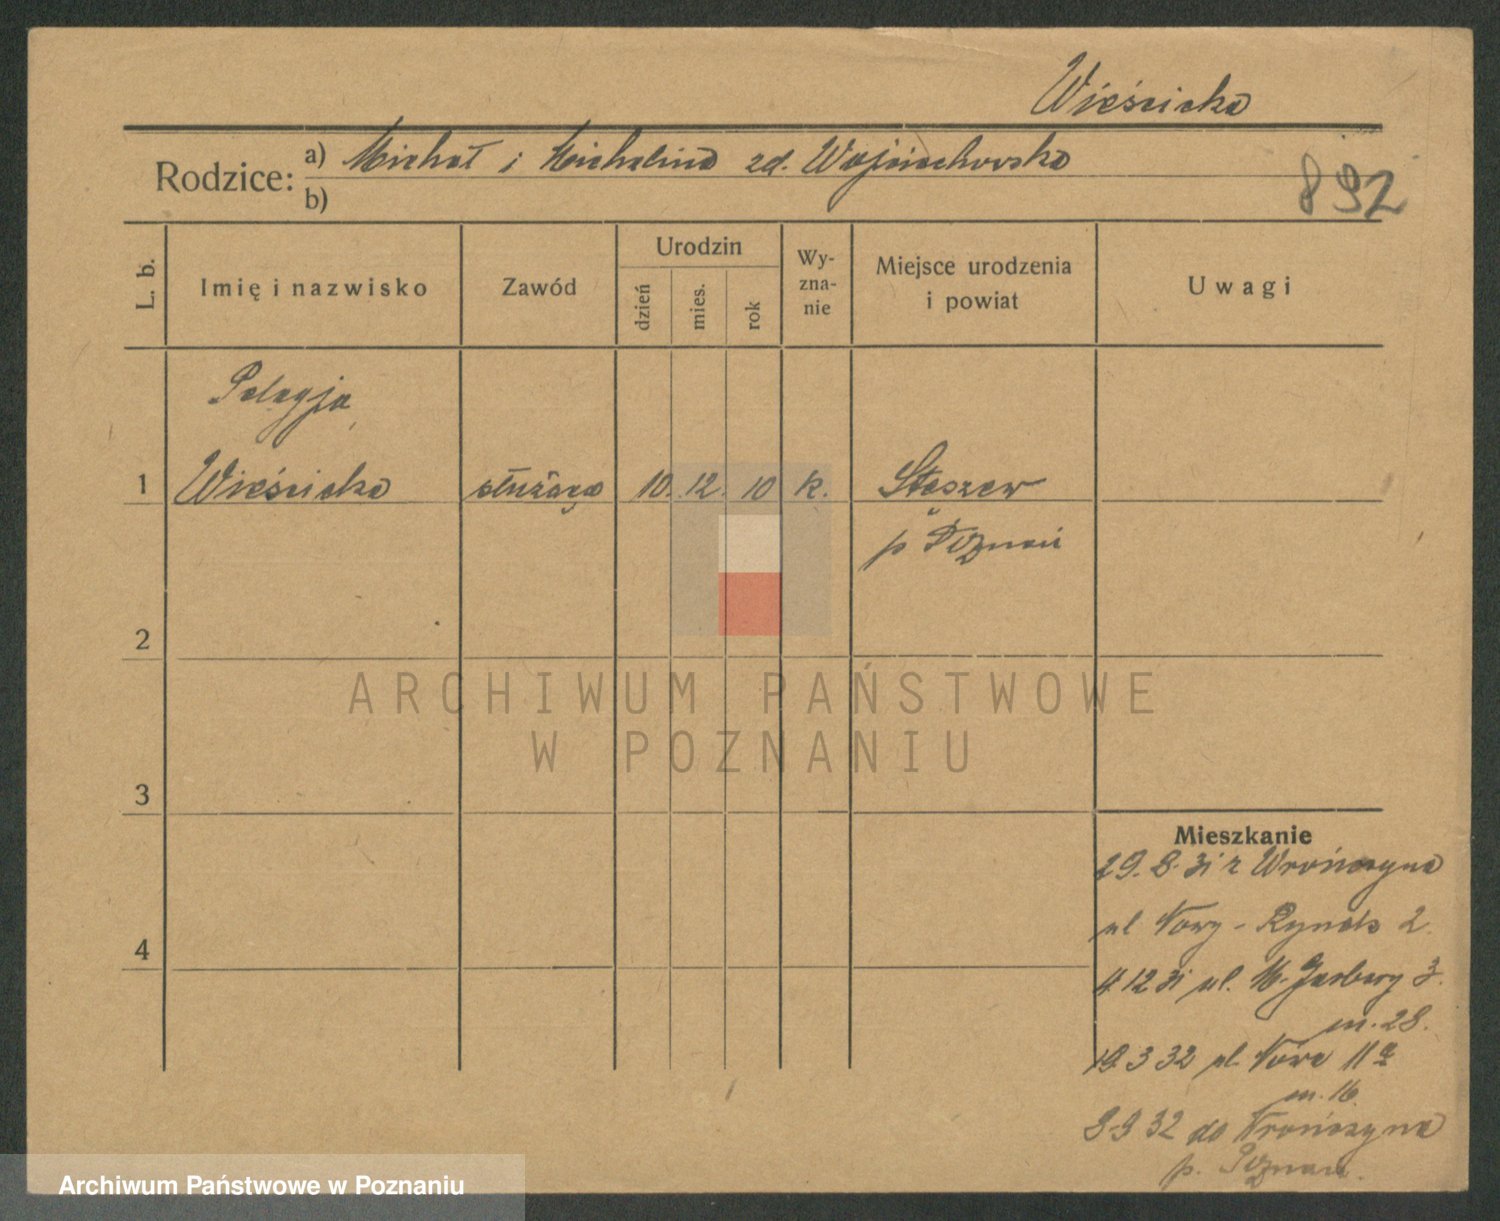 Wieścicka
Rodzice: a) Michał i Michalina zd. Wojciechowska
b)
892
L. b.
Imię i nazwisko
Zawód
Urodzin
dzień
mies.
rok
Wy-
zna-
nie
Miejsce urodzenia
i powiat
Uwagi
Pelagja
1 Wieścicka służąca 10. 12. 10 k.
p Poznań
2
ARCHIWUM PAŃSTWOWE
W POZNANIU
3
Mieszkanie
29. 8. 31 z Wrończyna
ul Nowy-Rynek 2.
4
4 12 31 ul. M. Garbary 3.
m. 28.
19. 3 32 ul. Nowa 11a
m. 16.
8 9 32 do Wrończyna
p. Poznań.
Archiwum Państwowe w Poznaniu